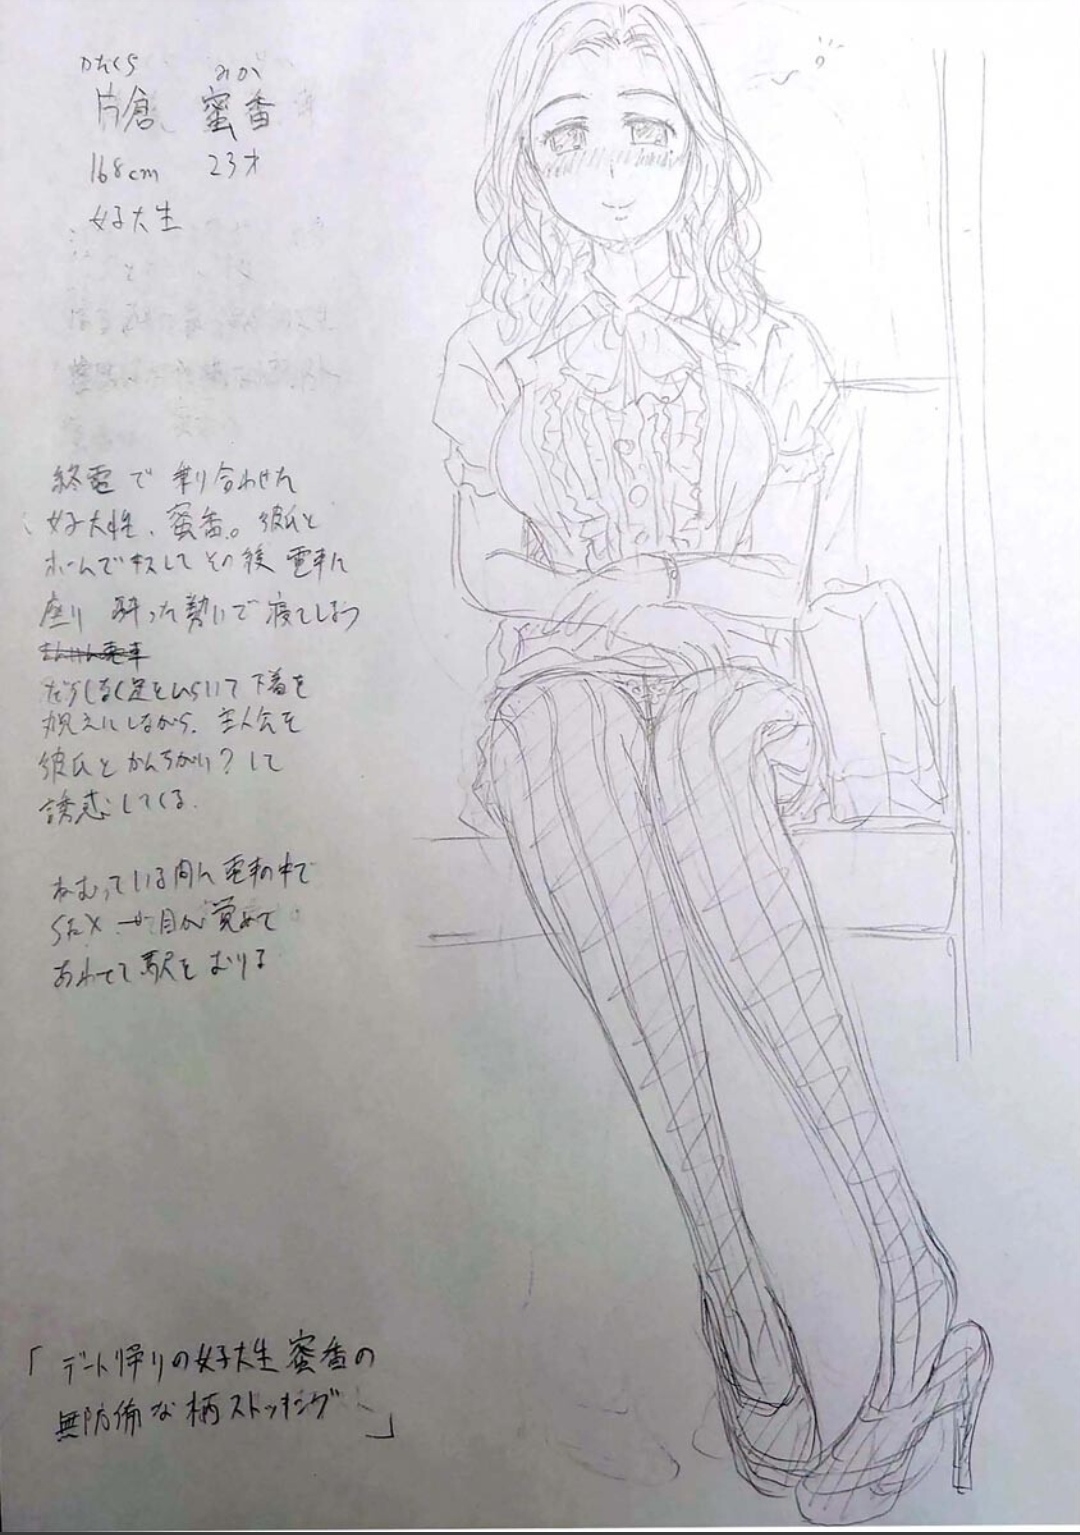 かたくら みか
片倉 蜜香
168cm 23才
女子大生
終電で乗り合わせた
女子大生、蜜香。彼氏と
ホームでキスしてその後電車に
座り 酔った勢いで寝てしまう
だらしなく足をひらいて下着を
丸見えにしながら、主人公を
彼氏とかんちがい?して
誘惑してくる。
ねむっている間に電車の中で
目が覚めて
あわてて駅をおりる
「デート帰りの女子大生蜜香の
無防備な柄ストッキング」